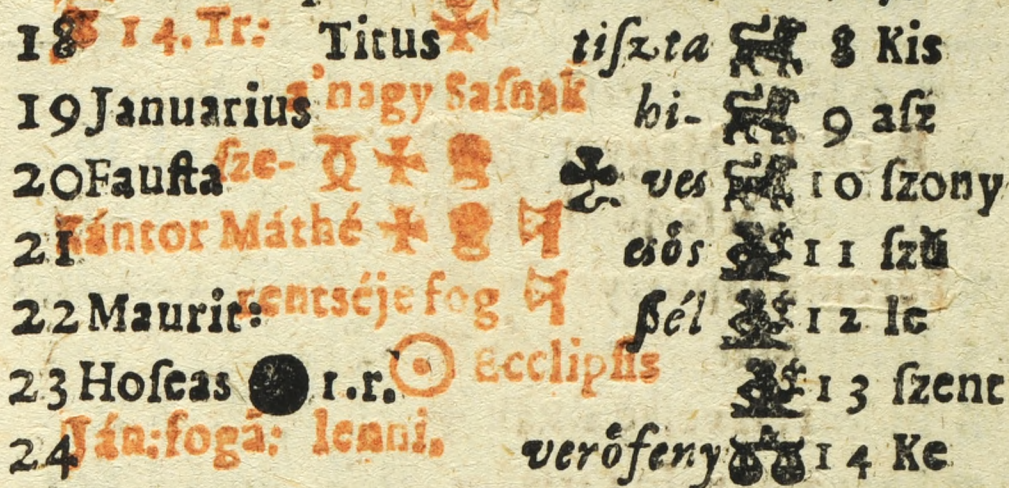 18 14. Tr: Titus tiſzta 8 Kis
19 Januarius a'nagy Saſnak hi- 9 aſz
20 Fauſta ſze- ves 10 ſzony
21 Kántor Máthé esős 11 ſzű
22 Maurit: rentséje fog ſzél 12 le
23 Hoſeas 1.r. Ecclipſis 13 ſzent
24 Ján: fogā: lenni. verőfeny 14 Ke